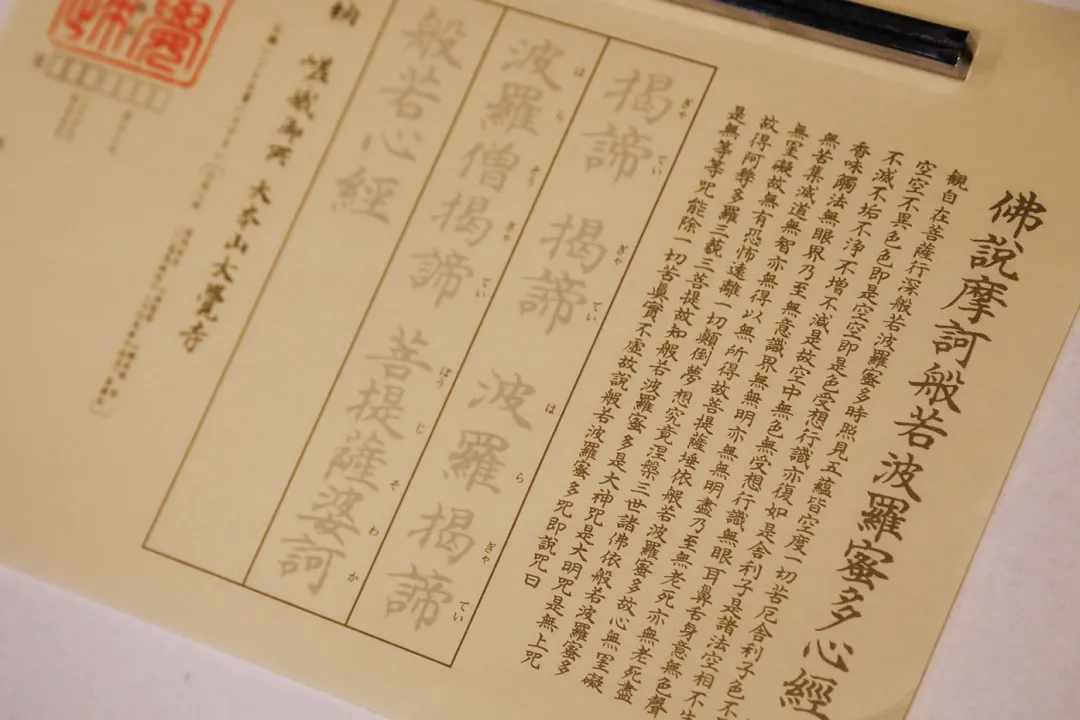 佛說摩訶般若波羅蜜多心經
観自在菩薩行深般若波羅蜜多時照見五蘊皆空度一切苦厄舎利子色不
空空不異色色即是空空即是色受想行識亦復如是舎利子是諸法空相不生
不滅不垢不浄不増不減是故空中無色無受想行識無眼耳鼻舌身意無色聲
香味觸法無眼界乃至無意識界無無明亦無無明盡乃至無老死亦無老死盡
無苦集滅道無智亦無得以無所得故菩提薩埵依般若波羅蜜多故心無罣礙
無罣礙故無有恐怖遠離一切顛倒夢想究竟涅槃三世諸佛依般若波羅蜜多
故得阿耨多羅三藐三菩提故知般若波羅蜜多是大神呪是大明呪是無上呪
是無等等呪能除一切苦眞實不虚故説般若波羅蜜多呪即説呪曰
ぎゃ てい ぎゃ てい は ら ぎゃ てい
揭諦 揭諦 波羅揭諦
は ら そう ぎゃ てい ぼう じ そ わ か
波羅僧揭諦 菩提薩婆訶
般若心經
納 嵯峨御所 大本山大覺寺